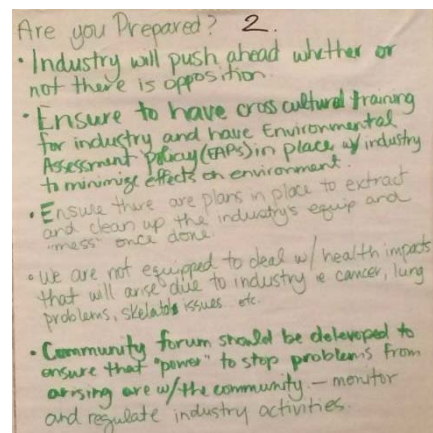 Are you Prepared? 2.
• Industry will push ahead whether or
not there is opposition.
• Ensure to have cross cultural training
for industry and have Environmental
Assessment Policy (EAPs) in place w/ industry
to minimize effects on environment.
• Ensure there are plans in place to extract
and clean up the industry's equip and
"mess" once done.
• We are not equipped to deal w/ health impacts
that will arise due to industry ie cancer, lung
problems, skelatol issues.. etc.
• Community forum should be deleveped to
ensure that "power" to stop problems from
arising are w/ the community. — monitor
and regulate industry activities.